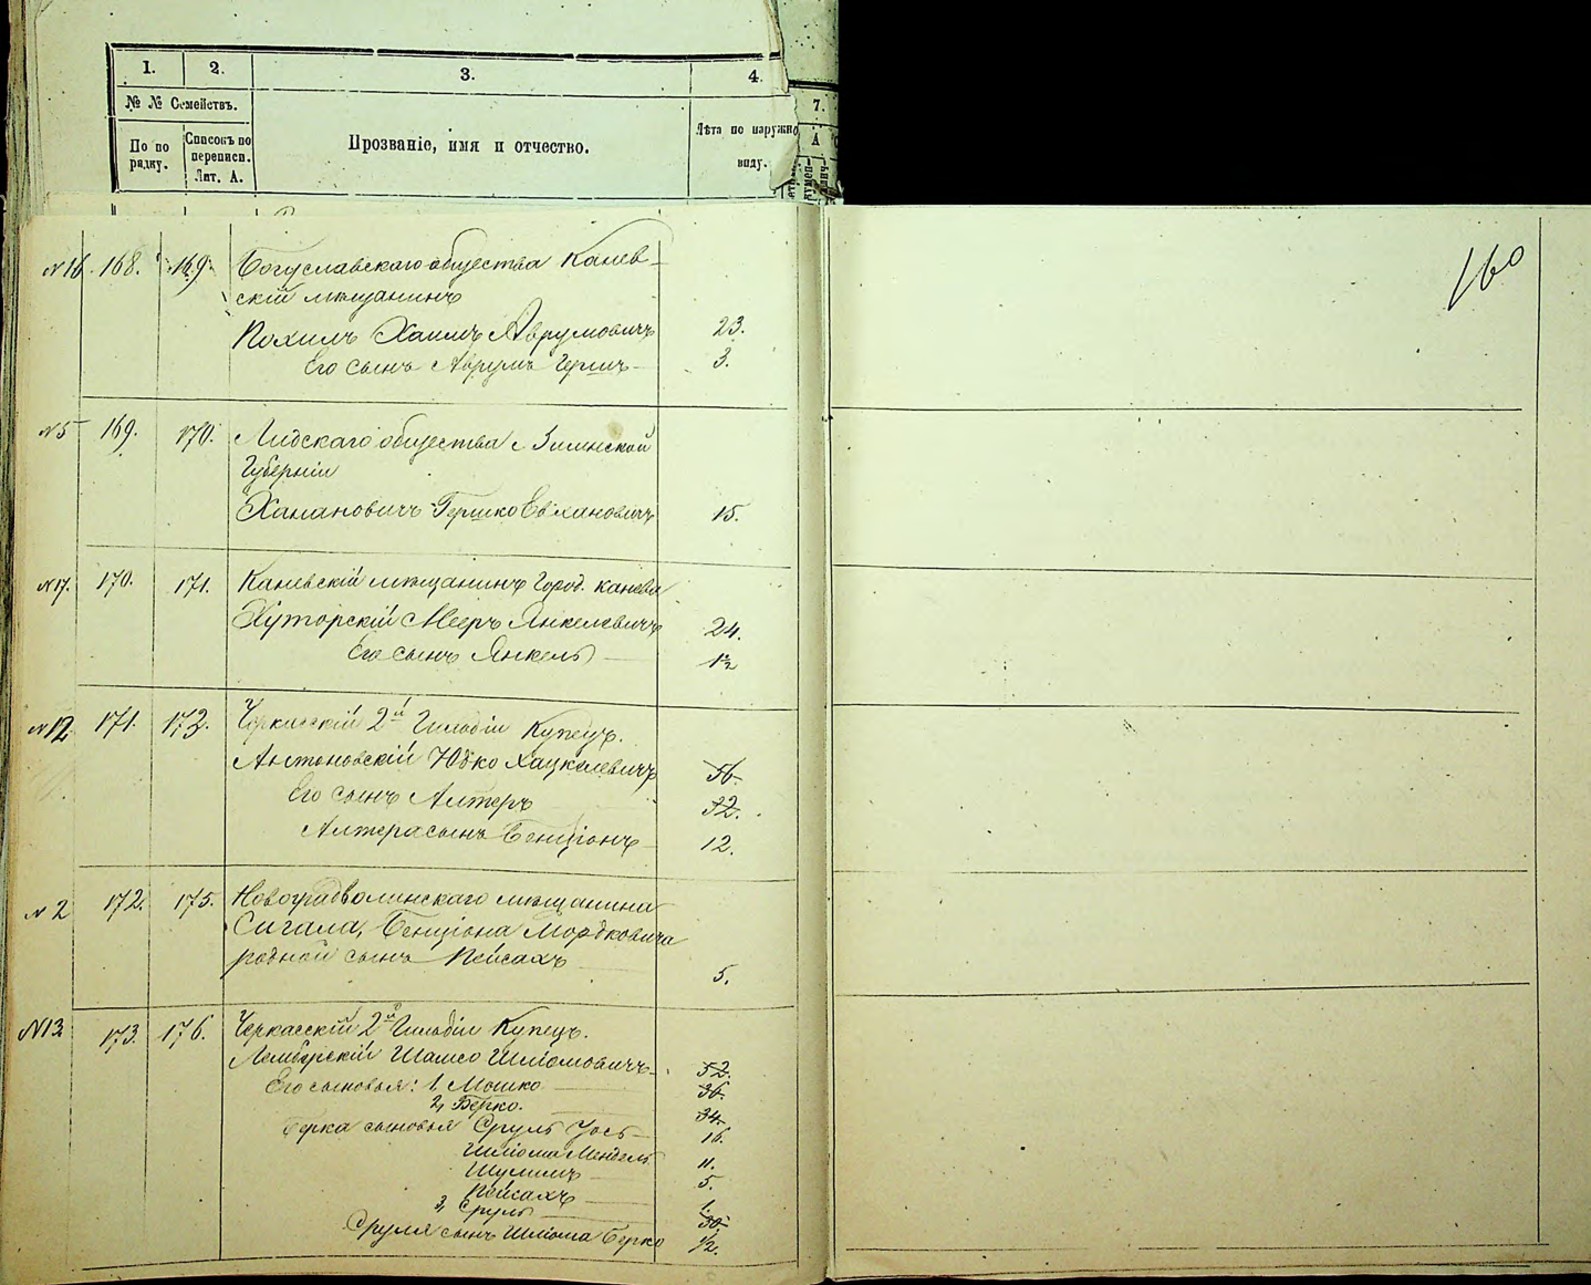 1. 2. 3. 4.
№ № Семействъ.
По по рядку.
Списокъ по переписи. Лит. А.
Прозваніе, имя и отчество.
Лѣта по наружно
виду.
7.
А
160
№16 168. 169. Богуславскаго общества Канев-
скій мѣщанинъ
Похилъ Хаимъ Аврумовичъ 23.
Его сынъ Аврумъ Гершъ 3.
№5 169. 170. Лидскаго общества Виленской
Губерніи
Ханановичъ Гершко 15.
№17. 170. 171. Каневскій мѣщанинъ Город. Канева
Хуторскій Мееръ Янкелевичъ 24.
Его сынъ Янкель 1½
№12 171. 173. Черкасскій 2й Гильдіи Купецъ.
Антоновскій Юдко Хацкелевичъ 56.
Его сынъ Алтеръ 32.
Алтера сынъ Бенціонъ 12.
№2 172. 175. Новоградволинскаго мѣщанина
Сигала, Бенціона Мордковича
родной сынъ Пейсахъ 5.
№13 173. 176. Черкасскій 2й Гильдіи Купецъ.
Лемберскій Шамсо Шліомовичъ 52.
Его сыновья: 1, Мошко 36.
2, Берко. 34.
Берка сыновья Сруль Іось 16.
Шліома Мендель 11.
Шулимъ 5.
Пейсахъ 1.
3, Сруль 30.
Сруля сынъ Шліома Берко ½.